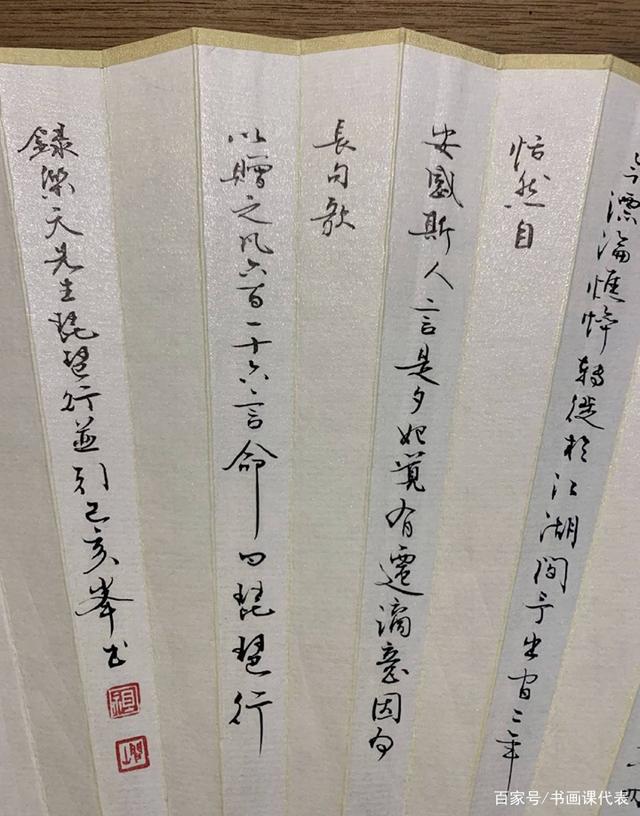 今漂淪憔悴轉徙於江湖間予出官二年
恬然自
安感斯人言是夕始覺有遷謫意因為
長句歌
以贈之凡六百一十六言命曰琵琶行
錄樂天先生琵琶行並引己亥峯書
百家号/书画课代表